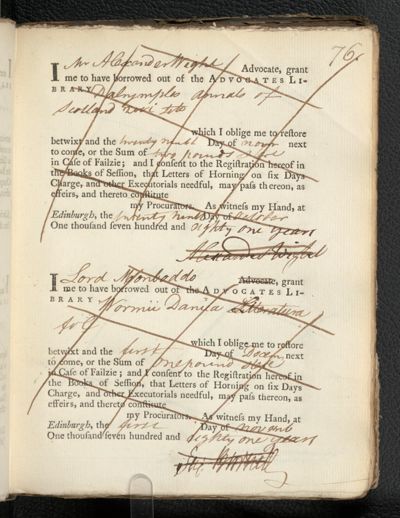 76
I Mr Alexander Wight Advocate, grant
me to have borrowed out of the ADVOCATES LI-
BRARY Dalrymples annals of
Scotland
which I oblige me to restore
betwixt and the twenty ninth Day of novr next
to come, or the Sum of two pounds
in Case of Failzie; and I consent to the Registration hereof in
the Books of Session, that Letters of Horning on six Days
Charge, and other Executorials needful, may pass thereon, as
effeirs, and thereto constitute
my Procurators. As witness my Hand, at
Edinburgh, the twenty ninth Day of october
One thousand seven hundred and eighty one years
Alexander Wight
I Lord Monboddo Advocate, grant
me to have borrowed out of the ADVOCATES LI-
BRARY Wormii Danica Literatura
fol
which I oblige me to restore
betwixt and the first Day of Decem next
to come, or the Sum of one pound
in Case of Failzie; and I consent to the Registration hereof in
the Books of Session, that Letters of Horning on six Days
Charge, and other Executorials needful, may pass thereon, as
effeirs, and thereto constitute
my Procurators. As witness my Hand, at
Edinburgh, the first Day of novemr
One thousand seven hundred and eighty one years